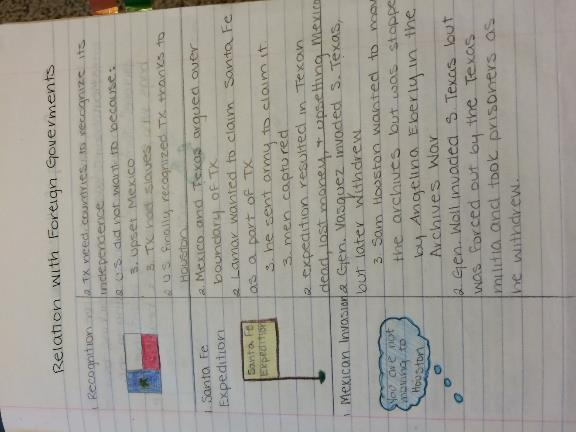 Relation With Foreign Goverments
1. Recognition
2. TX need countries to recognize its
independence
2. U.S. did not want to because:
3. upset Mexico
3. TX had slaves
2. U.S. finally recognized TX thanks to
Houston
1. Santa Fe
Expedition
2. Mexico and Texas argued over
boundary of TX
2. Lamar wanted to claim Santa Fe
as a part of TX
3. he sent army to claim it
3. men captured
2. expedition resulted in Texan
dead, lost money, + upsetting Mexico
Santa Fe
Expedition
1. Mexican Invasion
2. Gen. Vasquez invaded S. Texas,
but later withdrew
3. Sam Houston wanted to mov
the archives but was stoppe
by Angelina Eberly in the
Archives War
2. Gen. Woll invaded S. Texas but
was forced out by the Texas
militia and took prisoners as
he withdrew.
You are not
moving to
Houston!